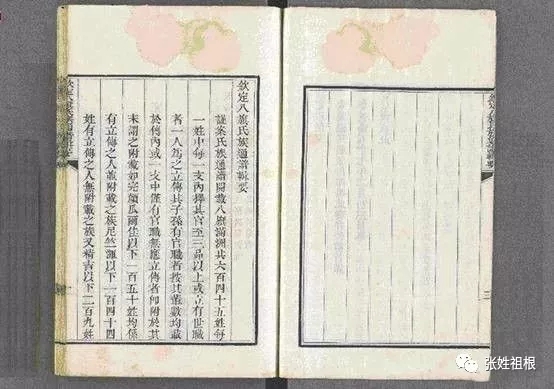 欽定八旗氏族通譜輯要
謹案氏族通譜開載八旗滿洲共六百四十五姓每
一姓中每一支內擇其官至三品以上或立有世職
者一人為之立傳其子孫有官職者按其輩數均載
於傳內或一支中僅有官職無應立傳者即附於其
末謂之附載如完顏瓜爾佳以下一百五十姓均係
有立傳之人兼附載之族尼竺渾以下一百四十四
姓有立傳之人無附載之族又精吉以下二百九姓
张姓祖根